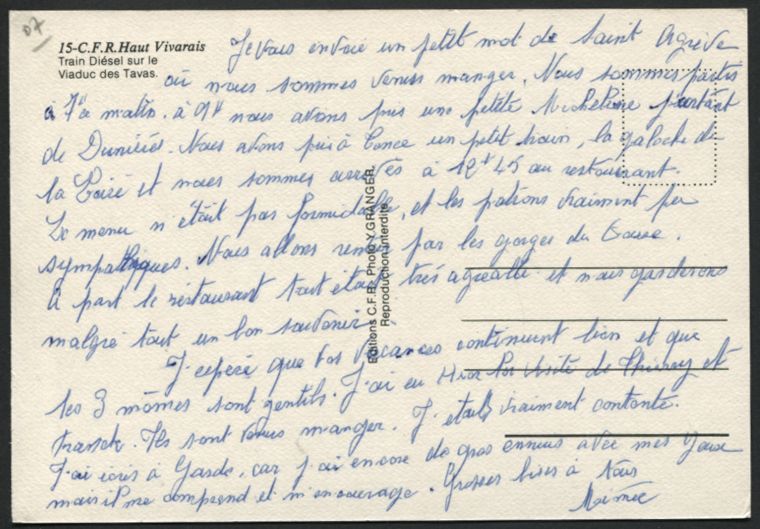 07
15-C.F.R.Haut Vivarais
Train Diésel sur le
Viaduc des Tavas.
Je vous envoie un petit mot de Saint Agrève
où nous sommes venus manger. Nous sommes partis
à 7h ce matin. à 9h nous avons pris une petite Micheline partant
de Dunières. Nous avons pris à Tence un petit train, la galoche de
la Loire et nous sommes arrivés à 12h45 au restaurant.
Le menu n'était pas formidable, et les patrons vraiment peu
sympathiques. Nous allons rentrer par les gorges du Doux.
A part le restaurant tout était très agréable et nous garderons
malgré tout un bon souvenir.
J'espère que vos vacances continuent bien et que
les 3 mômes sont gentils. J'ai eu Hier la visite de Thierry et
Franck. Ils sont venus manger. J'étais vraiment contente.
J'ai écris à Garde, car j'ai encore de gros ennuis avec mes yeux
mais il me comprend et m'encourage. Grosses bises à tous
Aimée
Editions C.F.R. Photo Y.GRANGER.
Reproduction interdite